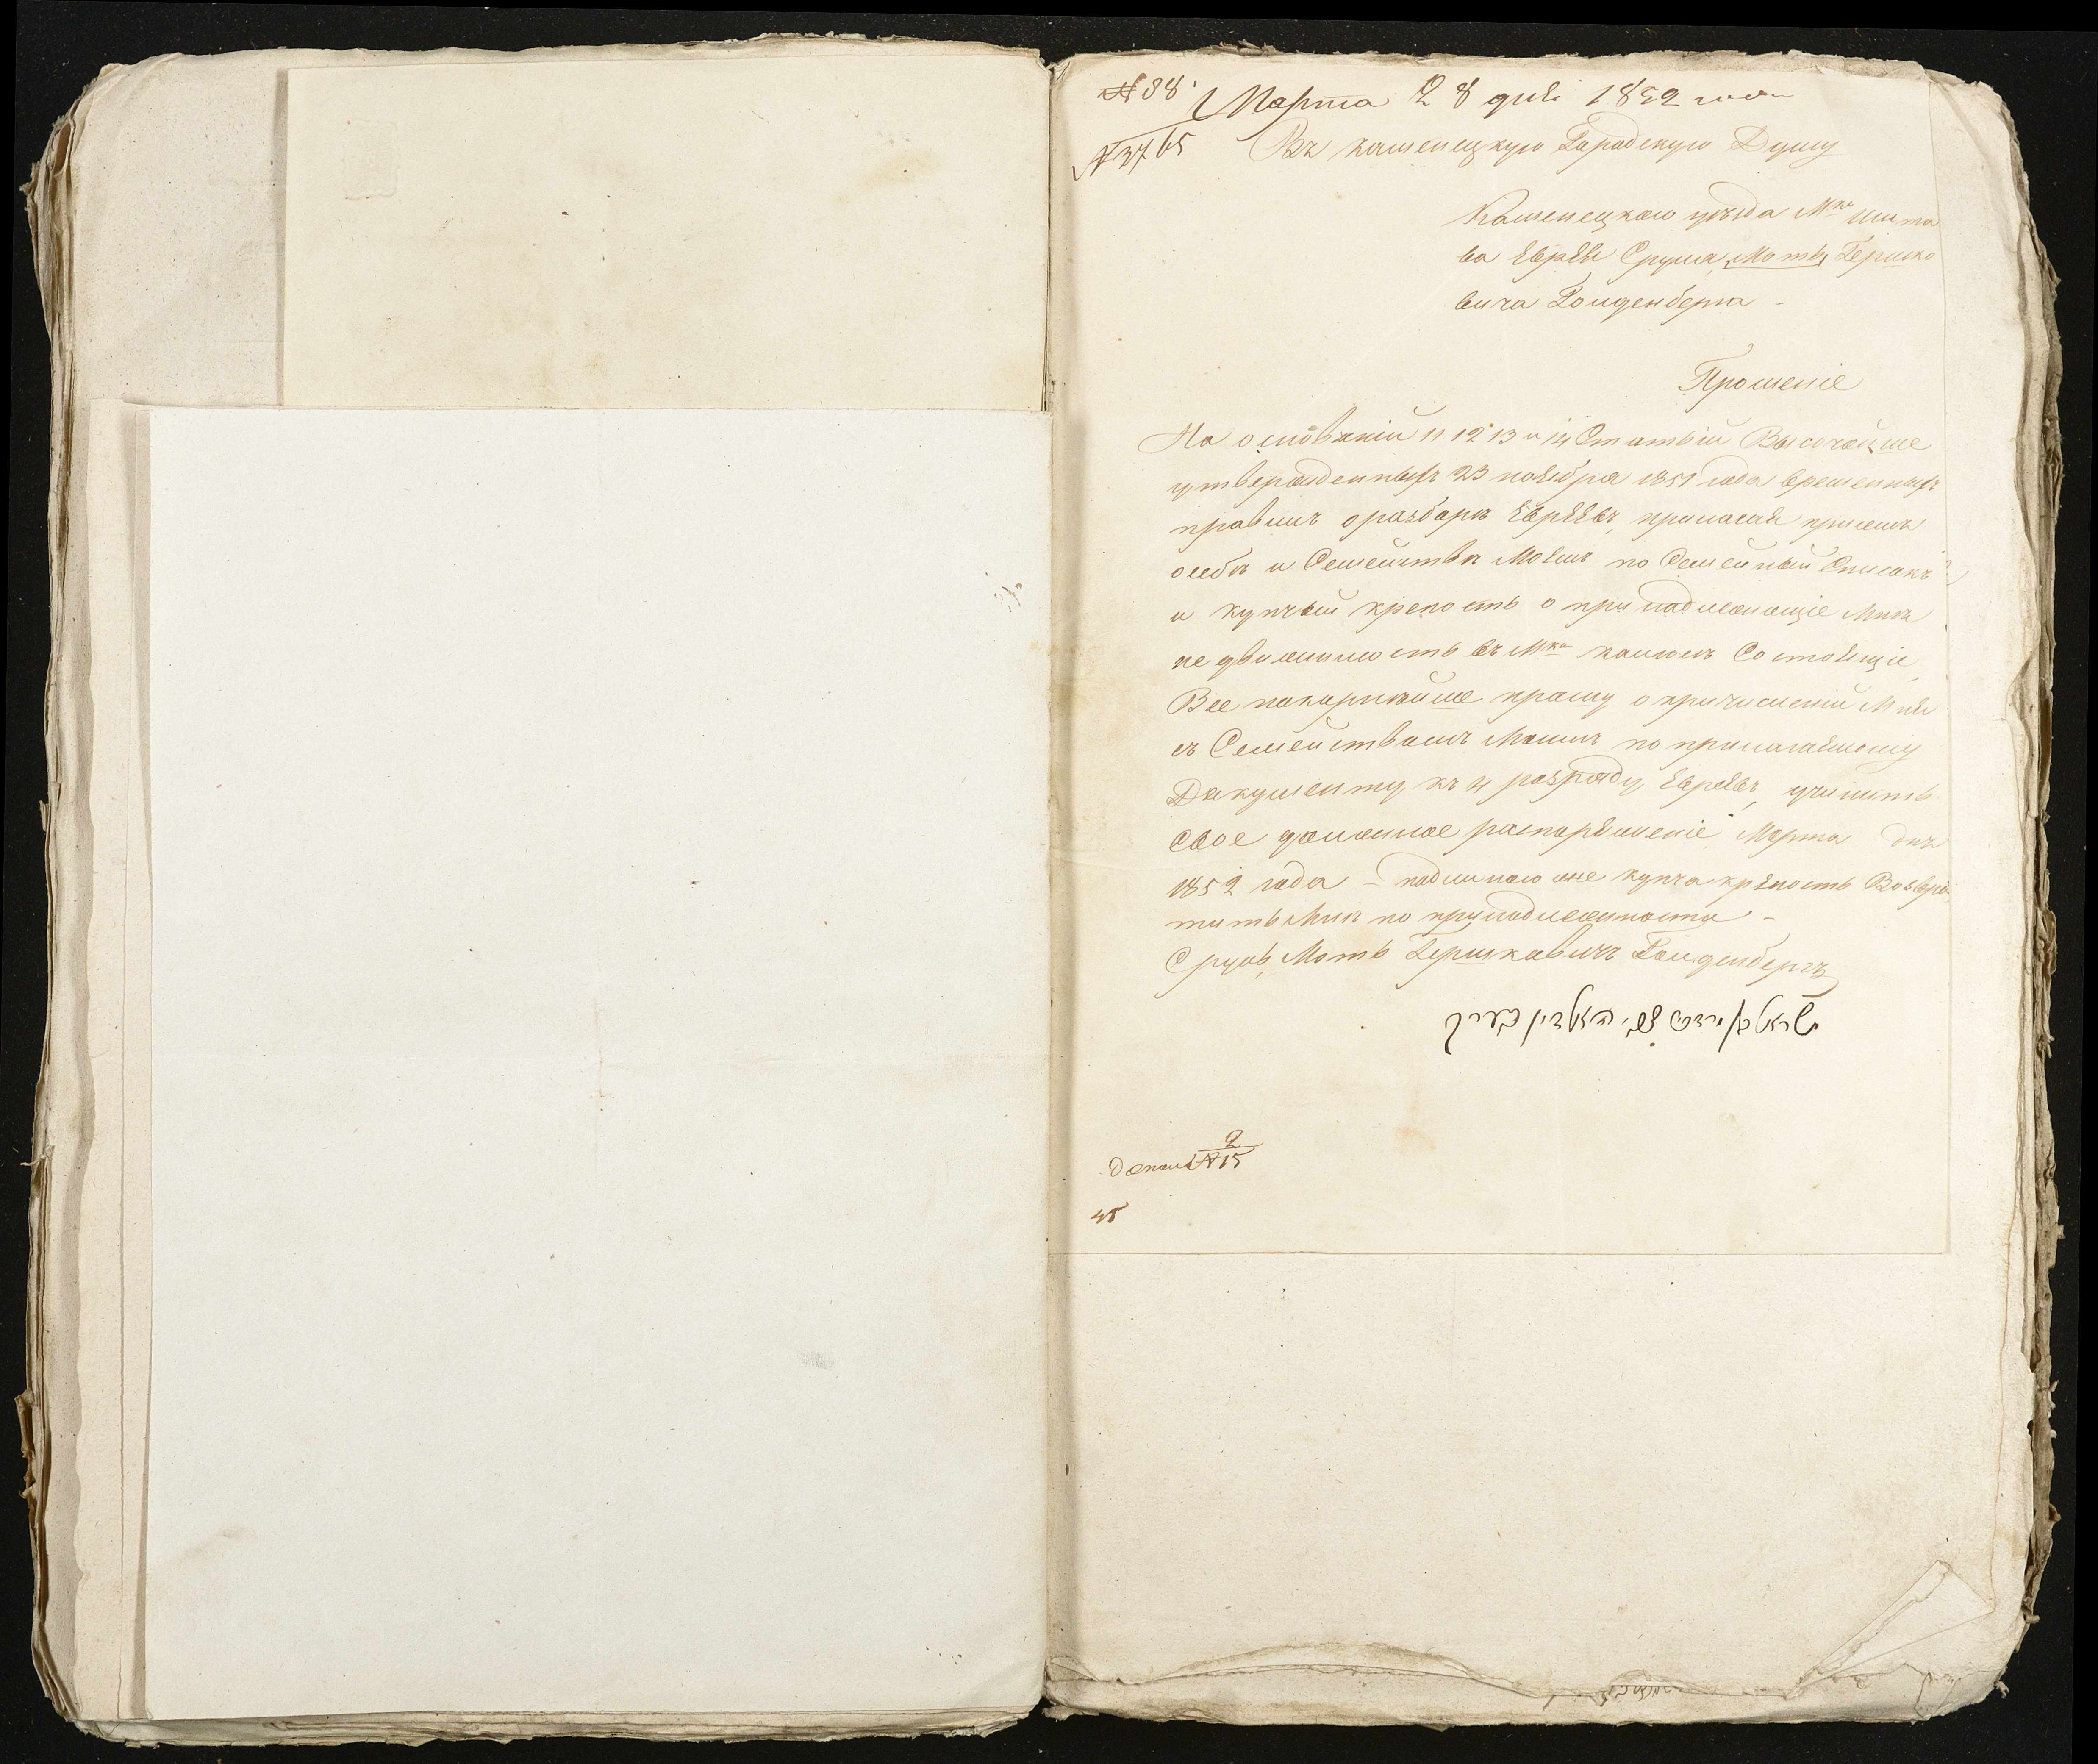 № 88
Марта 28 дня 1852 года
№ 3765
Въ каменецкую Городскую Думу
Каменецкаго уѣзда Мка Шата
ва Еврея Сруля Моть Гершко
вича Гольденберга -
Прошеніе
На основаніи 11 12 13 и 14 Статьи Высочайше
утвержденныхъ 23 ноября 1851 года временныхъ
правилъ о разборѣ Евреевъ, прилагая присемъ
о себѣ и Семействѣ Моемъ по Семейный Списокъ
и купчый крепость о принадлежащіе Мнѣ
недвижимость въ Мка Состоящіе
Все покорнѣйше прошу о причисленіи Меня
съ Семействомъ Моимъ по прилагаемому
Документу къ 4 разряду Евреевъ, учинить
свое должное распоряженіе Марта дня
1852 года - подлинную же купча крепость Возвра
тить Мнѣ по принадлежности -
Сруль Моть Гершковичъ Гольденбергъ
ישראל מרדכי האלדין בערג
2
№ 15
45